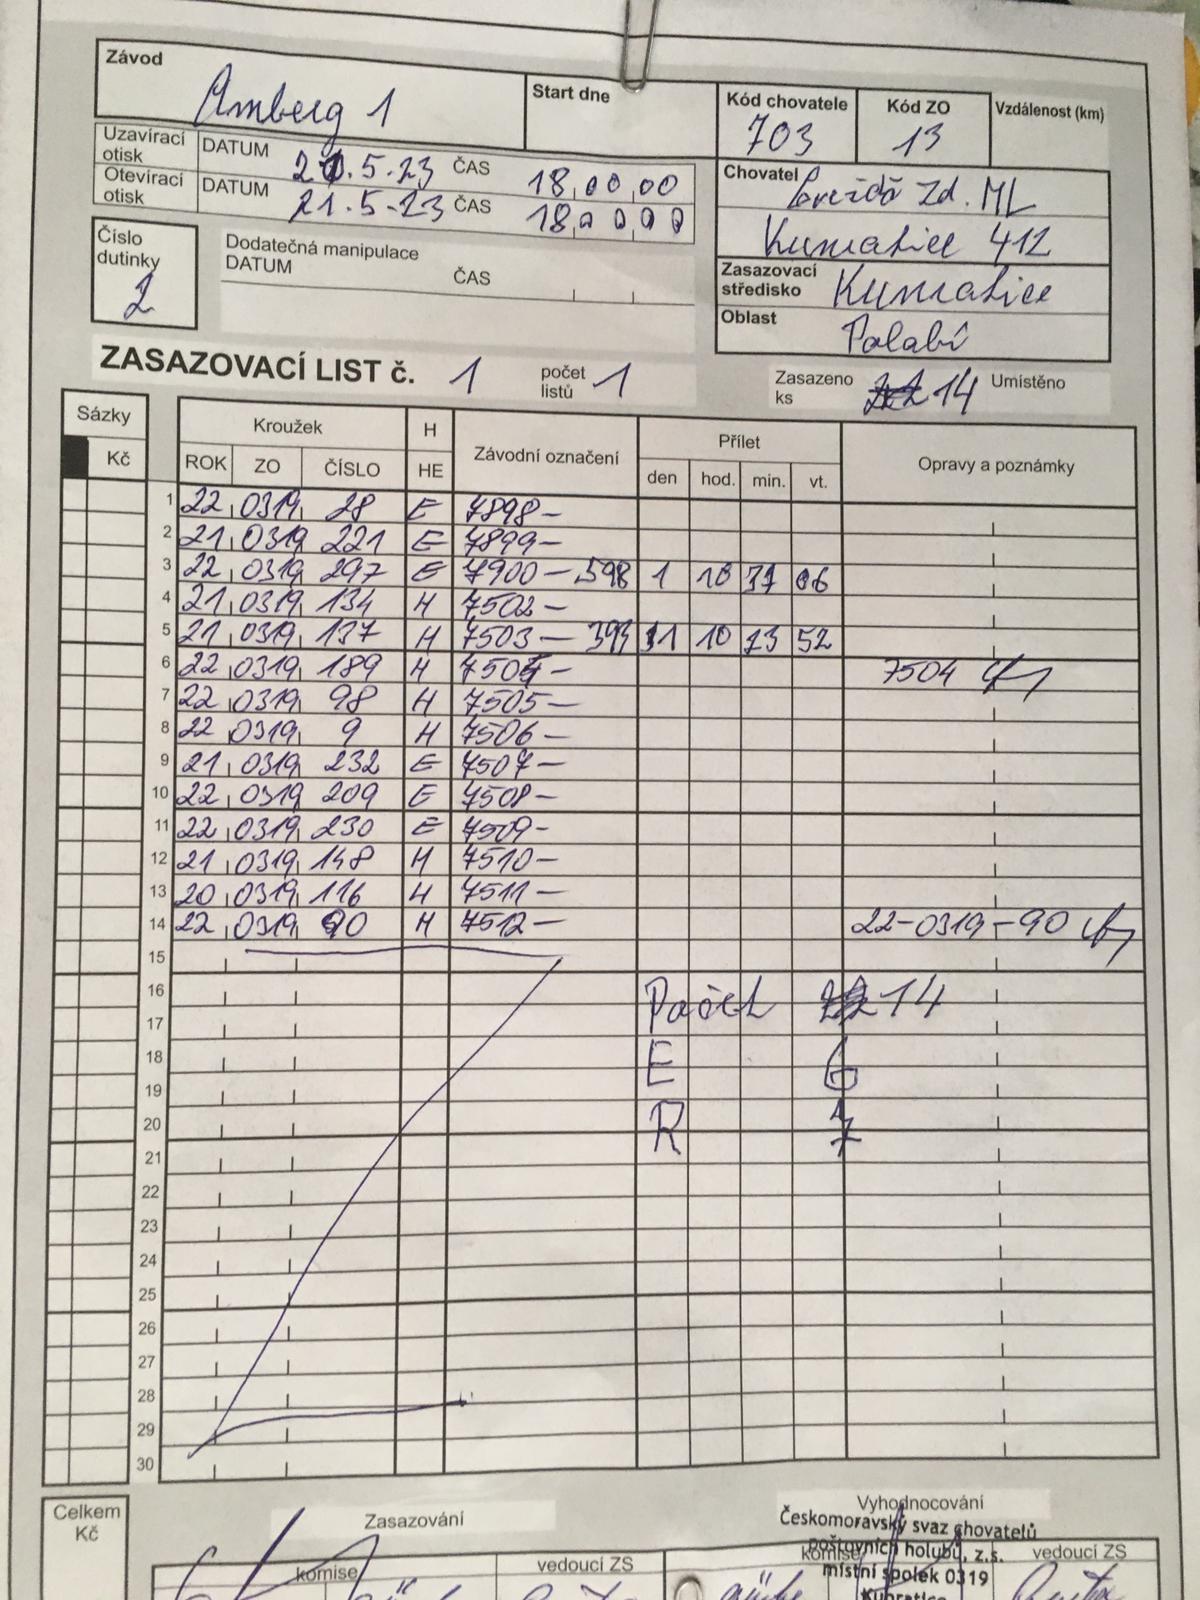 Závod
Amberg 1
Start dne
Kód chovatele
703
Kód ZO
13
Vzdálenost (km)
Uzavírací otisk DATUM 20.5-23 ČAS 18,00,00
Otevírací otisk DATUM 21.5-23 ČAS 18,00,00
Chovatel Zd. ML
Kunratice 412
Zasazovací středisko Kunratice
Oblast Polabí
Číslo dutinky
2
Dodatečná manipulace
DATUM ČAS
ZASAZOVACÍ LIST č. 1 počet listů 1
Zasazeno ks 14 Umístěno
Sázky
Kč
Kroužek H Závodní označení Přílet Opravy a poznámky
ROK ZO ČÍSLO HE den hod. min. vt.
1 22 0319 28 E 7898-
2 21 0319 221 E 7899-
3 22 0319 297 E 7900- 598 1 10 37 06
4 21 0319 134 H 7502-
5 21 0319 137 H 7503- 393 1 10 23 52
6 22 0319 189 H 7504- 7504
7 22 0319 98 H 7505-
8 22 0319 9 H 7506-
9 21 0319 232 E 7507-
10 22 0319 209 E 7508-
11 22 0319 230 E 7509-
12 21 0319 148 H 7510-
13 20 0319 116 H 7511-
14 22 0319 90 H 7512- 22-0319-90
15
16 Počet 14
17
18 E 6
19
20 R 7
21
22
23
24
25
26
27
28
29
30
Celkem Kč
Zasazování
Vyhodnocování
Českomoravský svaz chovatelů
poštovních holubů, z.s.
místní spolek 0319
Kunratice
komise vedoucí ZS komise vedoucí ZS